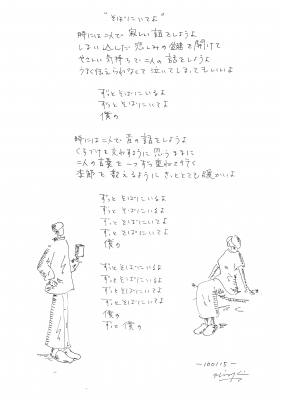 "そばにいてよ"
時には二人で 寂しい話をしようよ
しまい込んだ 悲しみの鍵を開けて
やさしい気持ちで 二人の話をしようよ
うまく伝えられなくて 泣いてしまってもいいよ
ずっとそばにいるよ
ずっとそばにいてよ
僕の
時には二人で 愛の話をしようよ
くちづけを交わすように 思うままに
二人の言葉を 一つずつ重ねて行く
季節を 数えるように きっととても暖かいよ
ずっと そばにいるよ
ずっと そばにいるよ
ずっと そばにいるよ
ずっと そばにいてよ
僕の
ずっと そばにいるよ
ずっと そばにいるよ
ずっと そばにいるよ
ずっと そばにいてよ
僕の
ずっと 僕の
〜100115〜